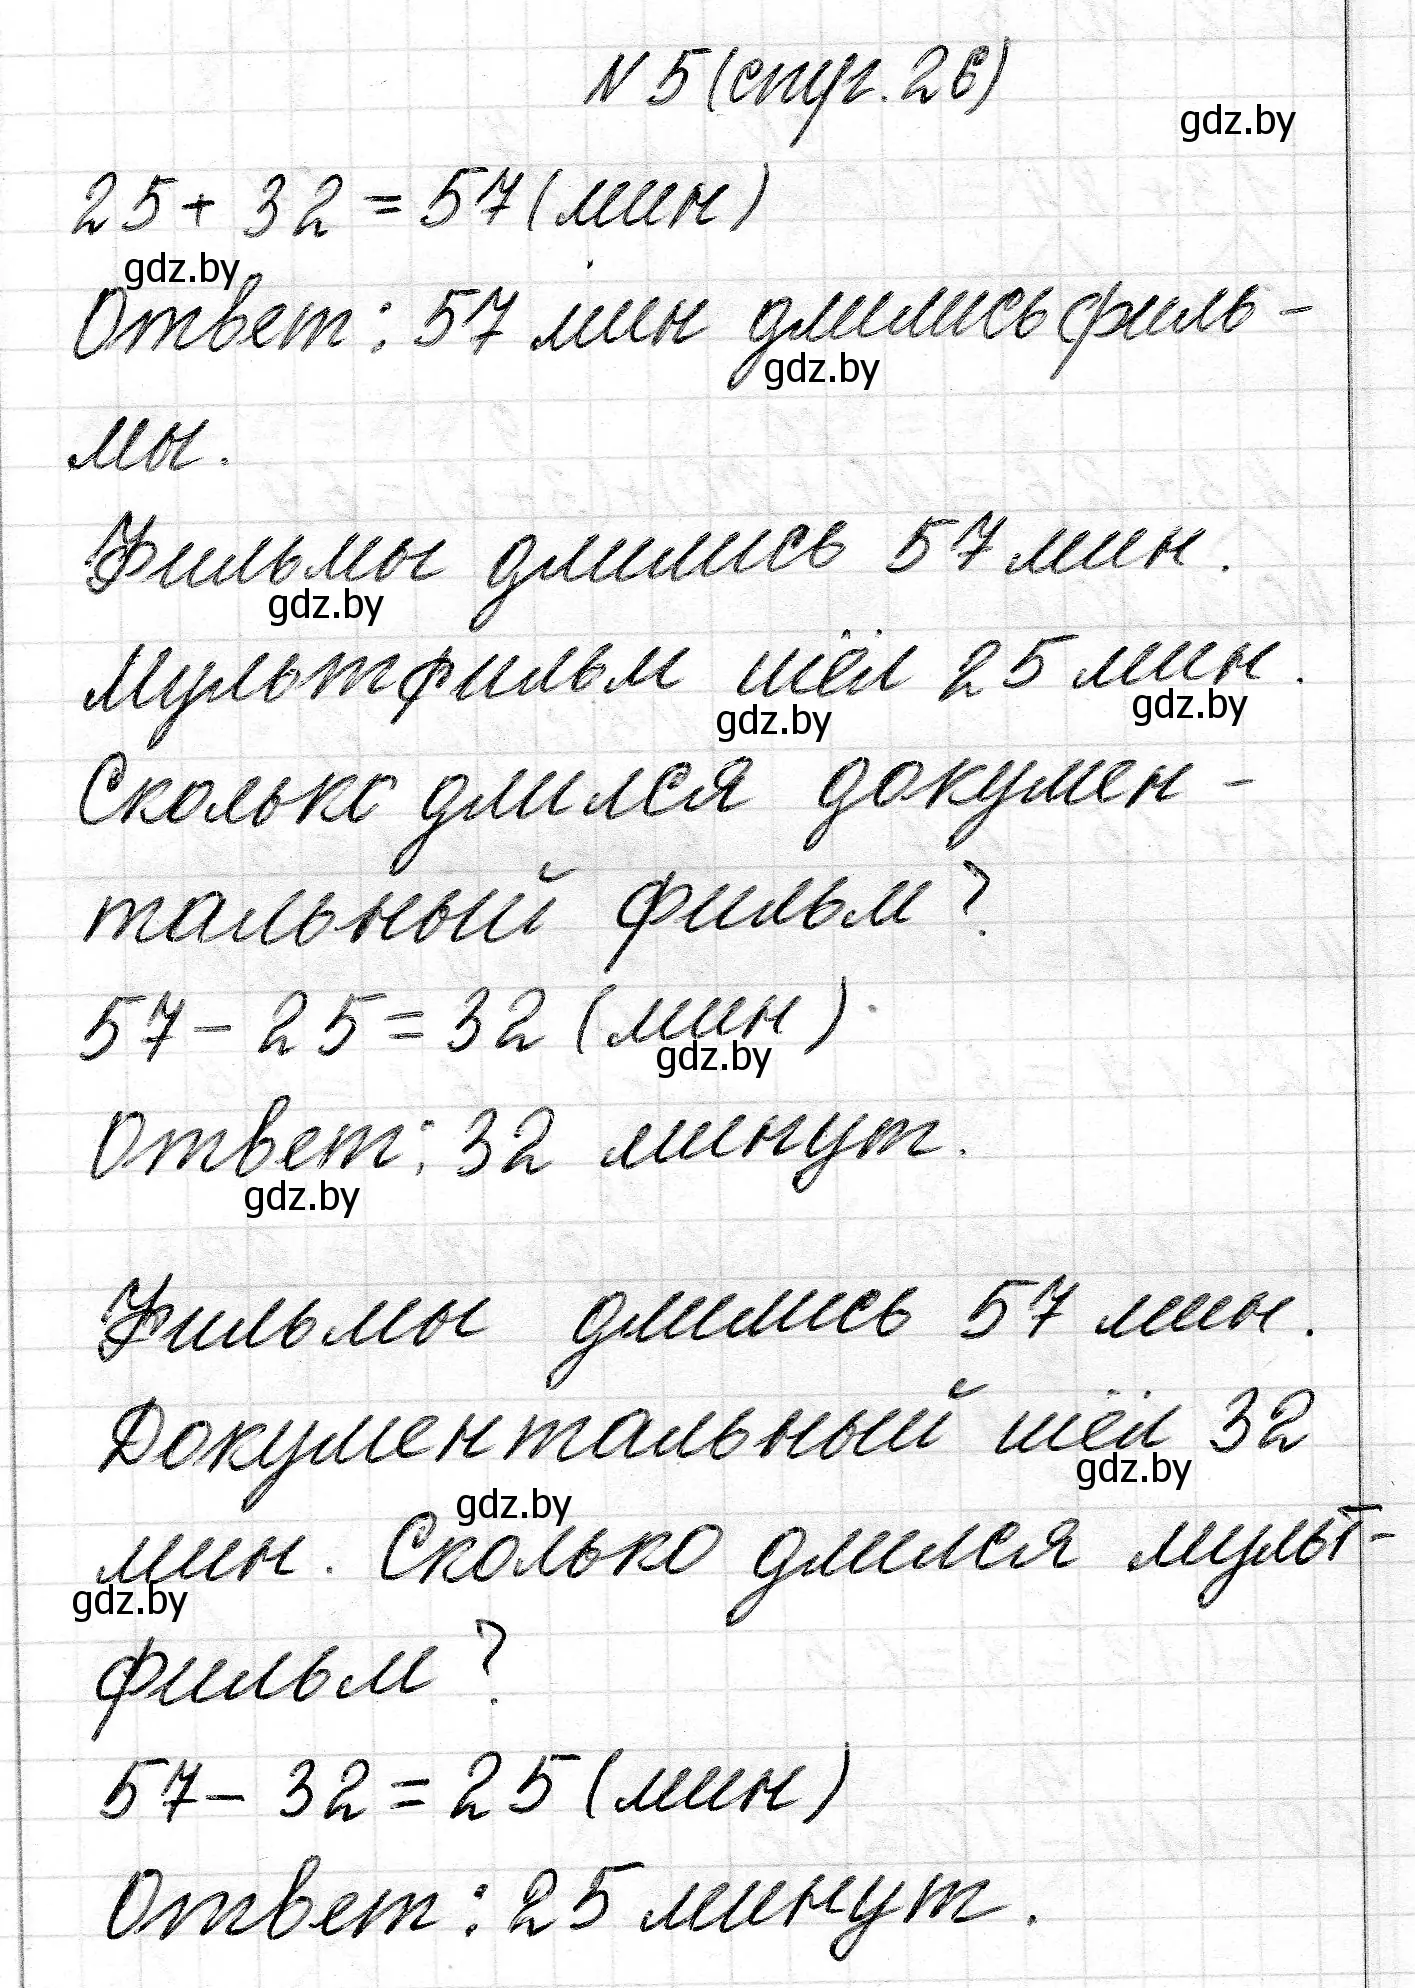 N 5 (стр. 26)
gdz.by
25 + 32 = 57 (мин)
gdz.by
Ответ: 57 мин длились филь-
gdz.by
мы.
Фильмы длились 57 мин.
gdz.by
Мультфильм шёл 25 мин.
gdz.by gdz.by
Сколько длился докумен-
тальный фильм?
57 - 25 = 32 (мин).
gdz.by
Ответ: 32 минут.
gdz.by
Фильмы длились 57 мин.
Документальный шёл 32
gdz.by
gdz.by
мин. Сколько длился мульт-
gdz.by
фильм?
57 - 32 = 25 (мин)
Ответ: 25 минут.